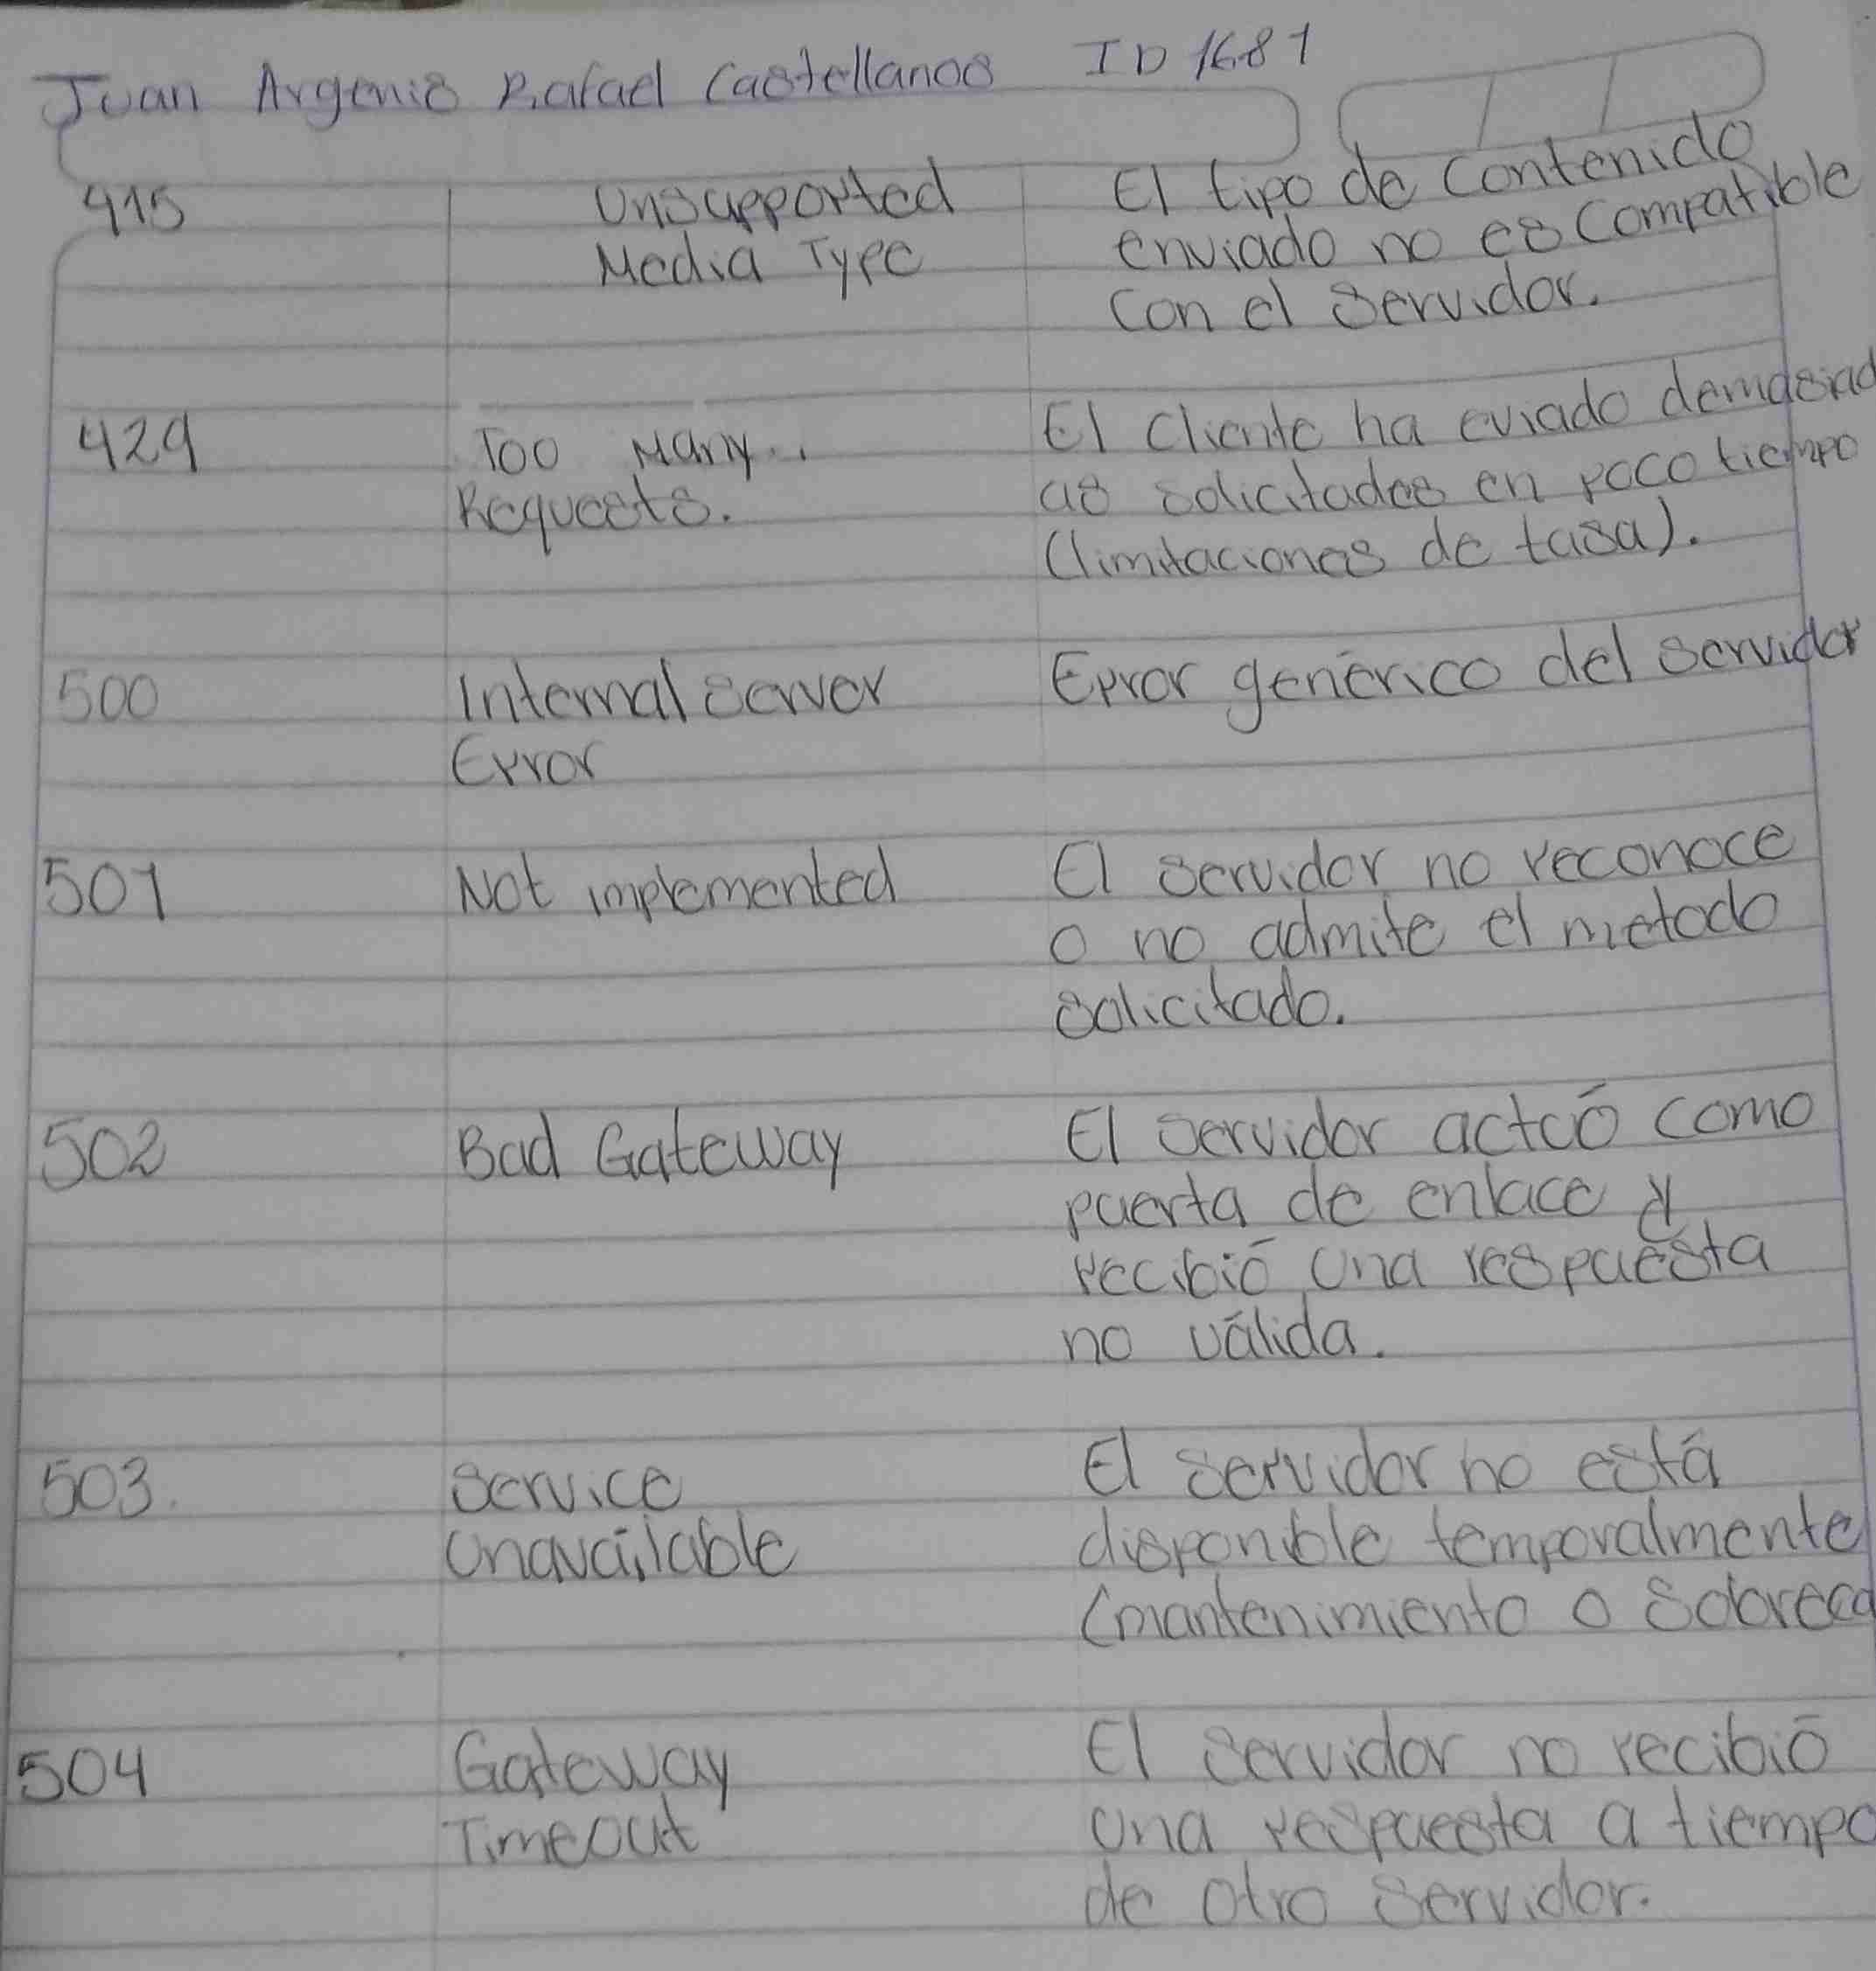 Juan Argenis Rafael Castellanos ID 1681
415 Unsupported El tipo de contenido
Media Type enviado no es compatible
con el servidor.
429 Too Many.. El cliente ha eviado demasiad
Requests. as solicitades en poco tiempo
(limitaciones de tasa).
500 Internal server Error genérico del servidor
Error
501 Not implemented El servidor no reconoce
o no admite el metodo
solicitado.
502 Bad Gateway El servidor actuó como
puerta de enlace y
recibió una respuesta
no válida.
503. Service El servidor no está
Unavailable disponible temporalmente
(mantenimiento o Sobreca
504 Gateway El servidor no recibió
Timeout una respuesta a tiempo
de otro servidor.